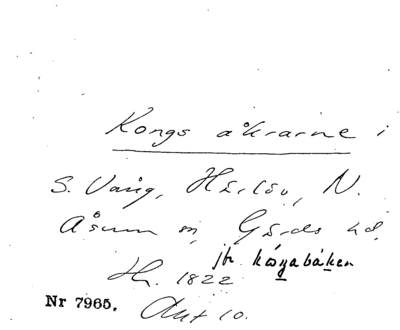 Kongs åkrarne i
S. Vång, Härlöv, N.
Åsum sn, Gärds hd.
jfr kåŋabåken
Hr. 1822
Nr 7965. Akt 10.